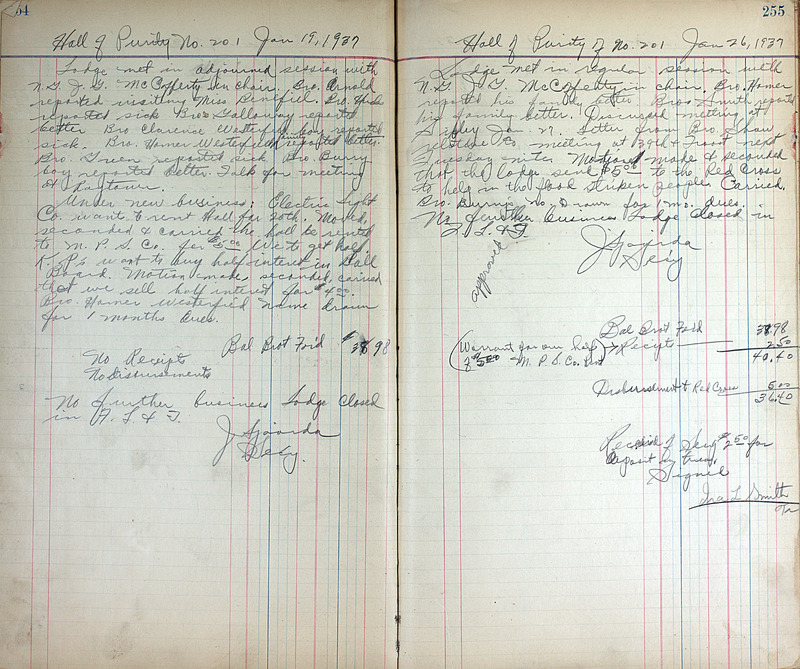 54
Hall of Purity No. 201 Jan 19, 1937
Lodge met in adjourned session with
N.G. J.G. McCofferty in chair. Bro. Arnold
reported visiting Miss Benefiel. Bro.
reported sick Bro Galloway reported
better Bro Clarence Westerfield boy reported
sick. Bro. Homer Westerfield family reported better.
Bro. Green reported sick Bro Burry
boy reported better. Talk for meeting
at Raytown.
Under new business; Electric Light
Co. want to rent Hall for 20th. Moved,
seconded & carried the hall be rented
to M. P. S. Co. for $5.00 We to get half.
K. P's want to buy half interest in Ball
Board. Motion make, seconded, carried
that we sell half interest for $4.00.
Bro. Homer Westerfield name drawn
for 1 months dues.
Bal Brot Ford $38 98
No Receipts
No Disbursments
No further business Lodge closed
in F. L. & T.
J Sjoirda
Secy.
255
Hall of Purity No. 201 Jan 26, 1937
Lodge met in regular session with
N.G. J.G. McCofferty in chair. Bro. Homer
reported his family better Bro Smith reported
his family better. Discussed meeting at
Sibley Jan. 27. Letter from Bro. Shaw
relative to meeting at 39th & Troost next
Tuesday nite. Motion made & seconded
that the lodge send $5.00 to the Red Cross
to help in the flood striken people Carried.
Bro. Burris No. Drawn for 1 mo. dues.
No further business Lodge closed in
F. L. & T.
J Sjoirda
Secy
approved
Bal Brot Ford 38 98
(Warrant for our half) → Receipts 2 50
of 5.00 M. P. S. Co. 40.40
Disbursment to Red Cross 5.00
36.40
Received of Secy $2.50 for
deposit by treas.
Signed
Ira L Smith